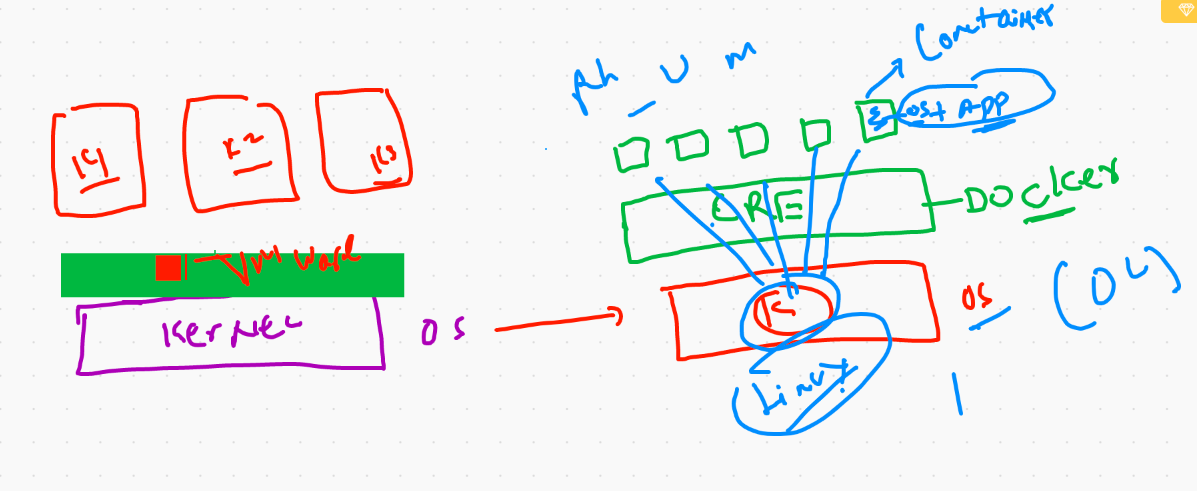 K1
K2
K3
VM Ware
KerNel
OS
Container
OS + App
CRE
DOcker
K
OS
(OL)
Linux